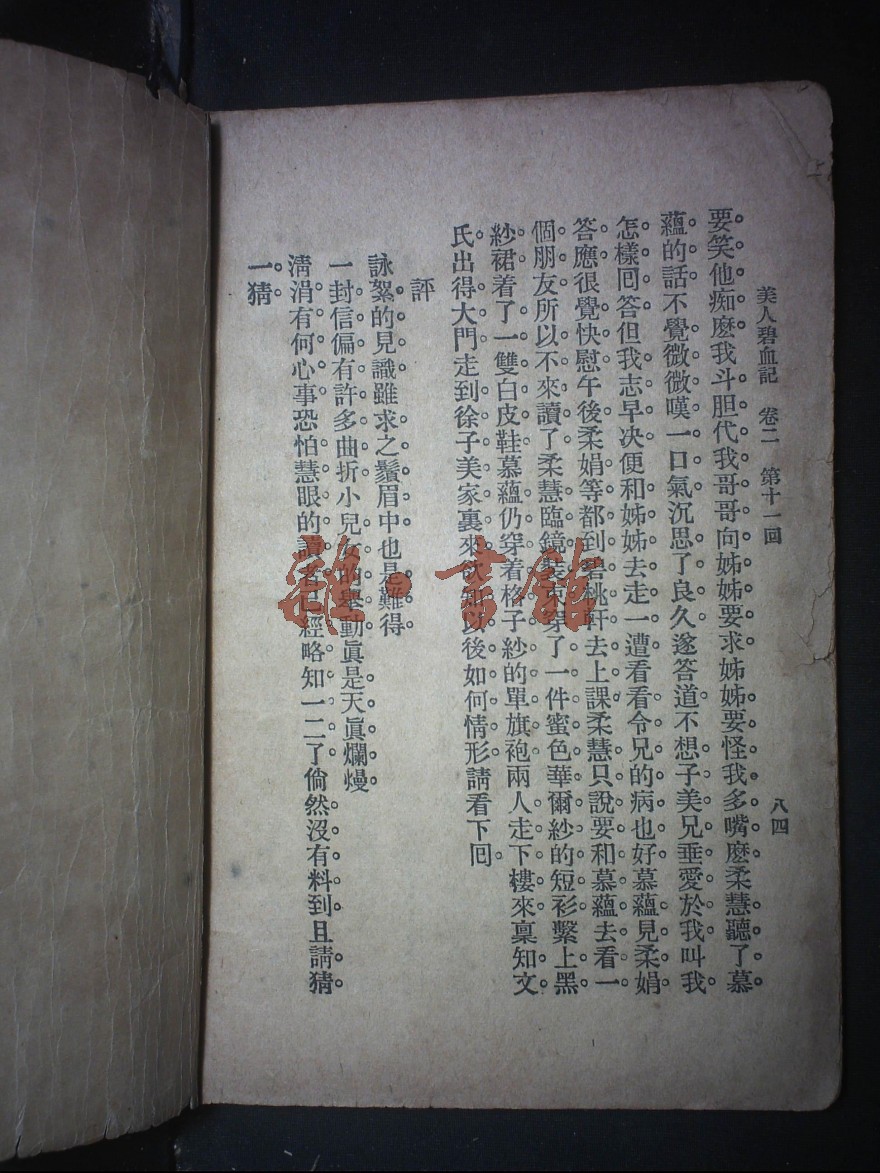 美人碧血記　卷二　第十一回　八四
要笑他痴麽我斗胆代我哥哥向姊姊要求姊姊要怪我多嘴麽柔慧聽了慕
蘊的話不覺微微嘆一口氣沉思了良久遂答道不想子美兄垂愛於我叫我
怎樣回答但我志早决便和姊姊去走一遭看看令兄的病也好慕蘊見柔娟
答應很覺快慰午後柔娟等都到碧桃軒去上課柔慧只說要和慕蘊去看一
個朋友所以不來讀了柔慧臨鏡裝又穿了一件蜜色華爾紗的短衫繫上黑
紗裙着了一雙白皮鞋慕蘊仍穿着格子紗的單旗袍兩人走下樓來稟知文
氏出得大門走到徐子美家裏來欲知以後如何情形請看下回
評
詠絮的見識雖求之鬚眉中也是難得
一封信偏有許多曲折小兒女的舉動眞是天眞爛熳
淸涓有何心事恐怕慧眼的讀者已經略知一二了倘然沒有料到且請猜
一猜
雜·書館